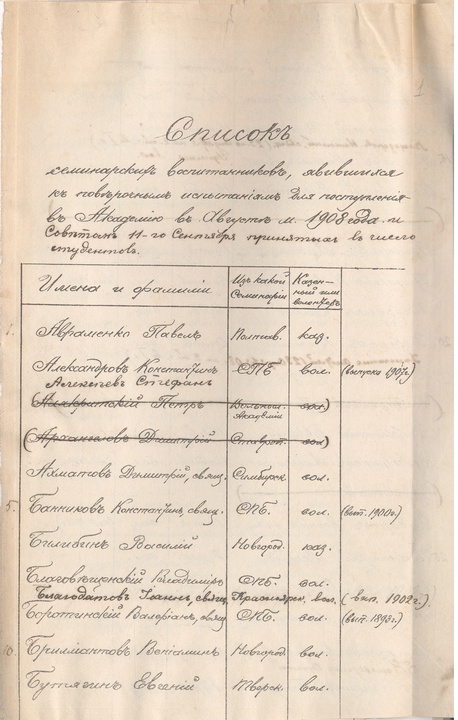 Списокъ
семинарскихъ воспитанниковъ, явившихся
къ повѣрочнымъ испытаніямъ для поступленія
въ Академію въ Августѣ м. 1908 года и
Совѣтомъ 11-го Сентября принятыхъ въ число
студентовъ.
Имена и фамиліи Изъ какой Семинаріи Казен-ный или волонтеръ
1. Авраменко Павелъ Полтав. каз.
Александровъ Константинъ СПБ. вол. (выпуска 1907 г.)
Алексѣевъ Стефанъ
Петръ Вольнош. Академіи вол.)
(Архангеловъ Димитрій Ставроп. вол)
Ахматовъ Димитрій, свящ. Симбирск вол.
5. Банниковъ Константинъ, свящ. СПБ. вол. (вып. 1900 г.)
Билибинъ Василій Новгород. каз.
Благовѣщенскій Владимиръ СПБ. вол.
Благодатовъ Іоаннъ, свящ. Красноярск. вол. (вып. 1902 г.).
Боротинскій Валеріанъ, свящ СПБ. вол. (вып. 1893 г.)
10. Бриллиантовъ Веніаминъ Новгород. вол.
Бутягинъ Евгеній Тверск. вол.